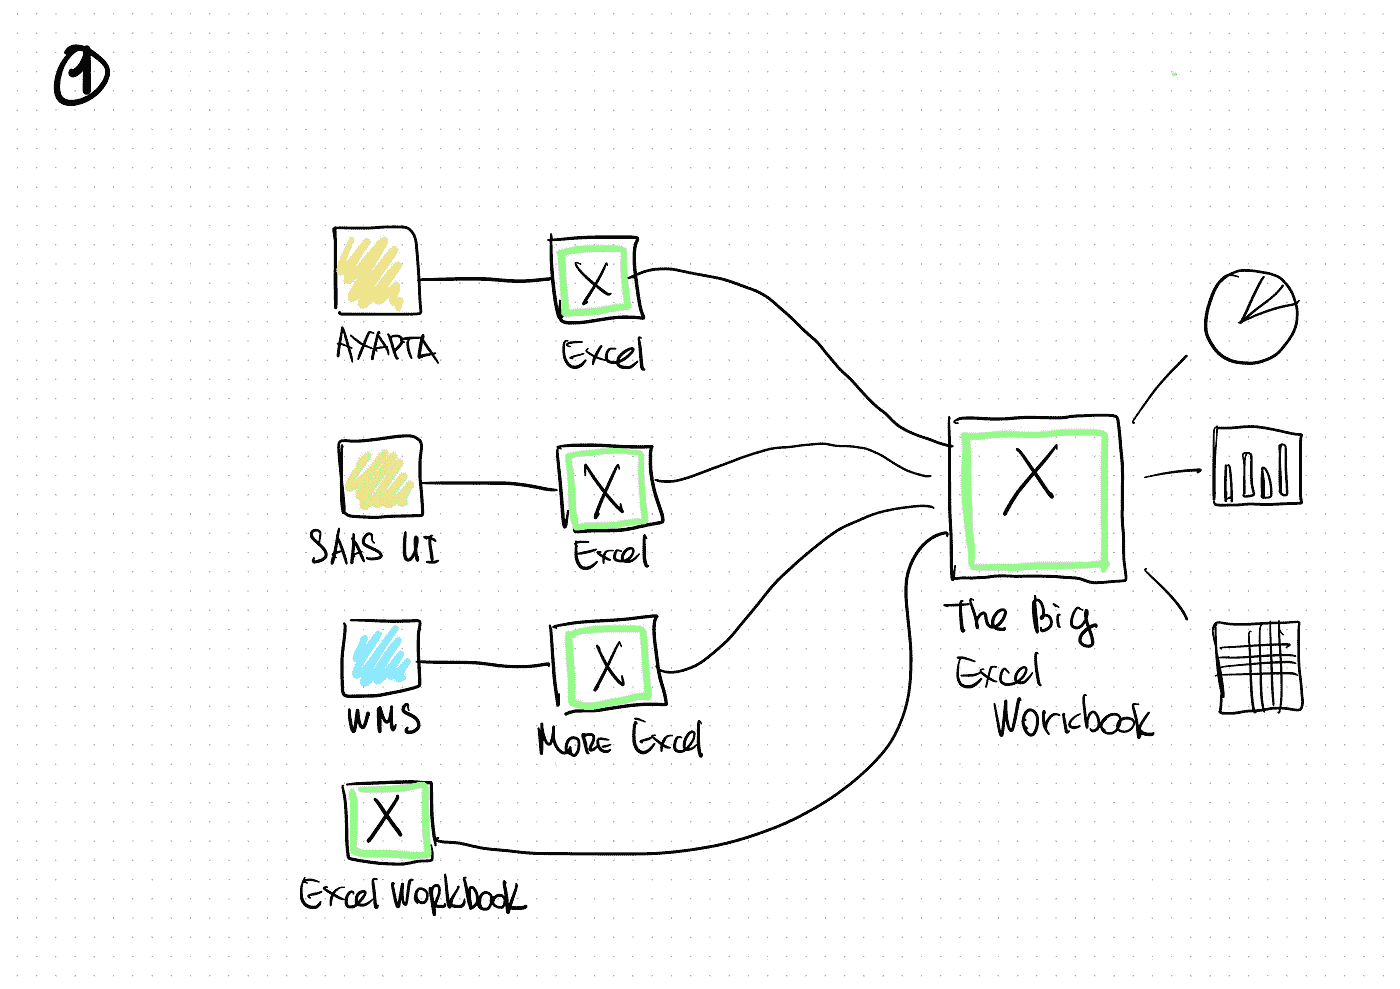 1
AXAPTA
Excel
SAAS UI
Excel
WMS
MORE Excel
X
X
X
X
Excel WORKBOOK
X
The Big
Excel
Workbook